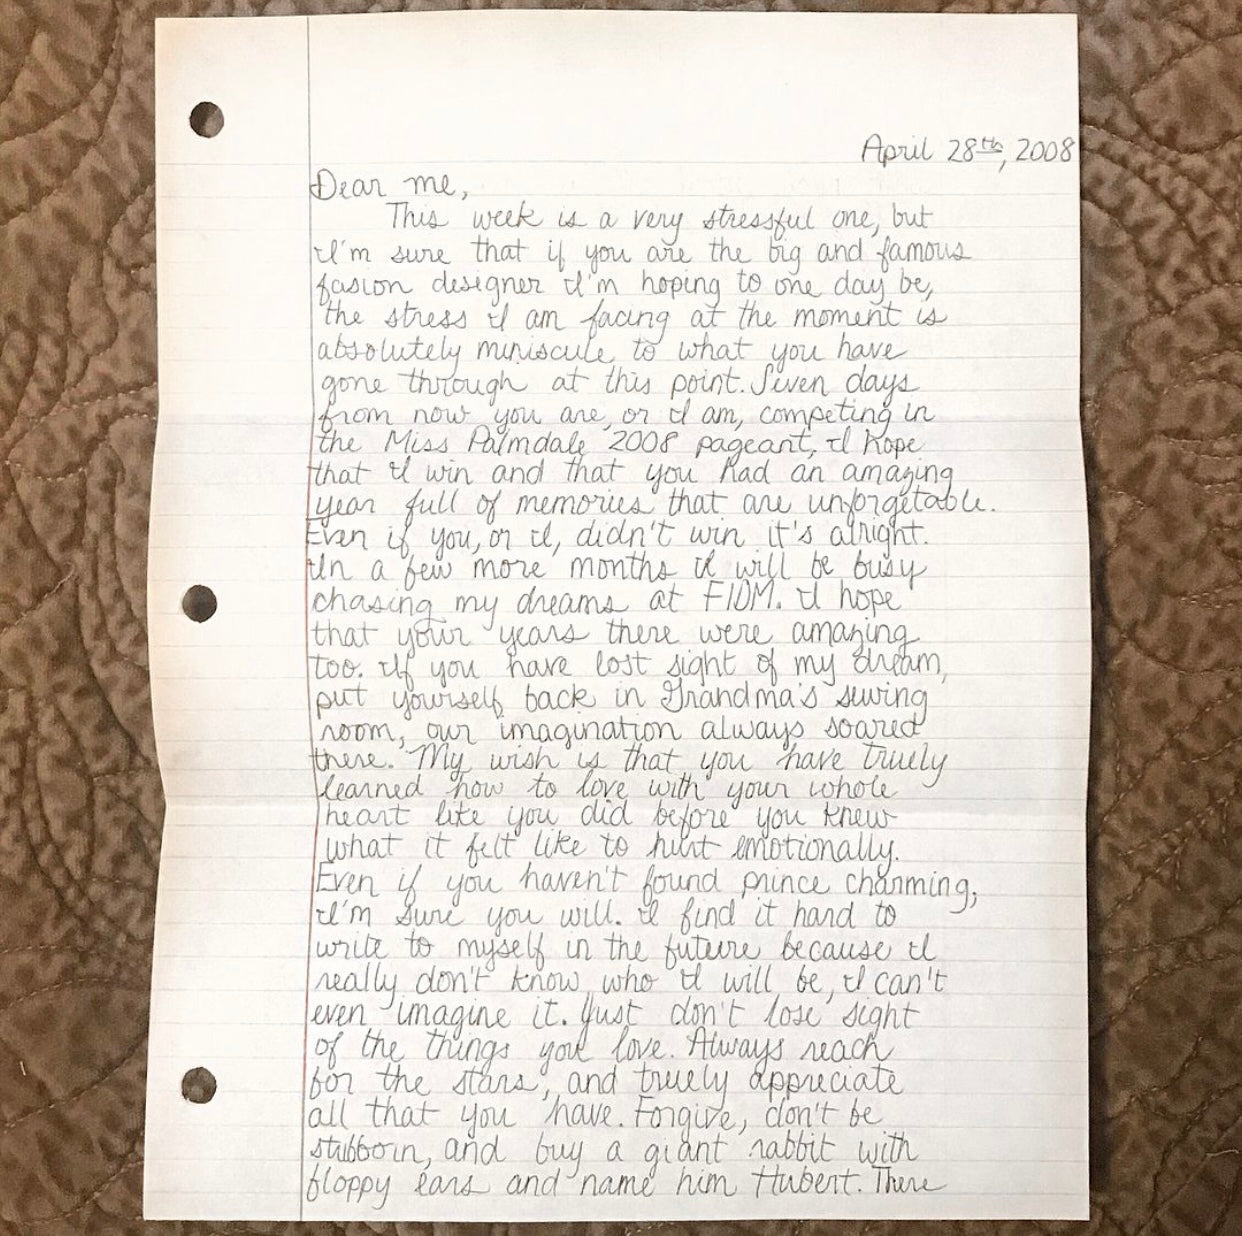 April 28th, 2008
Dear me,
This week is a very stressful one, but
I'm sure that if you are the big and famous
fasion designer I'm hoping to one day be,
the stress I am facing at the moment is
absolutely miniscule to what you have
gone through at this point. Seven days
from now you are, or I am, competing in
the Miss Palmdale 2008 pageant, I hope
that I win and that you had an amazing
year full of memories that are unforgetable.
Even if you, or I, didn't win it's alright.
In a few more months I will be busy
chasing my dreams at FIDM. I hope
that your years there were amazing
too. If you have lost sight of my dream,
put yourself back in Grandma's sewing
room, our imagination always soared
there. My wish is that you have truely
learned how to love with your whole
heart like you did before you knew
what it felt like to hurt emotionally.
Even if you haven't found prince charming,
I'm sure you will. I find it hard to
write to myself in the future because I
really don't know who I will be, I can't
even imagine it. Just don't lose sight
of the things you love. Always reach
for the stars, and truely appreciate
all that you have. Forgive, don't be
stubborn, and buy a giant rabbit with
floppy ears and name him Hubert. There